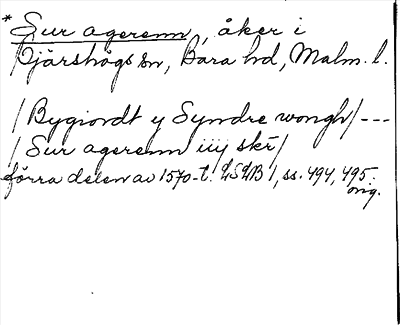 * Sur agerenn, åker i
Kjärshögs sn, Bara hd, Malm. l.
/Bygiordt y Syndre wongh/---
/Sur agerenn iiij skr/
förra delen av 1570-t. LSLB 1, ss. 494, 495.
orig.